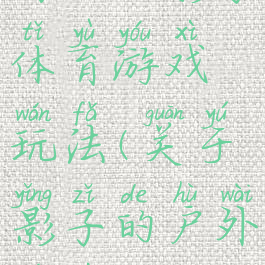 tǐ yù yóu xì
体育游戏
wán fǎ guān yú
玩法(关于
yǐng zi de hù wài
影子的户外